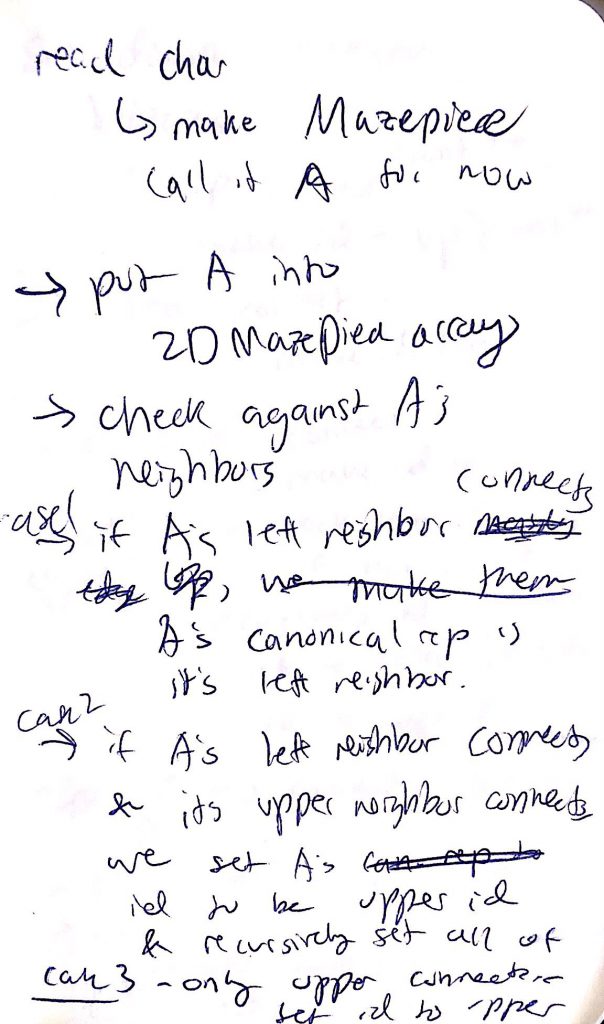 read char
↳ make Mazepiece
call it A for now
→ put A into
2D MazePiece array
→ check against A's
neighbors
connects
case 1 → if A's left neighbor
up,
A's canonical rep is
it's left neighbor.
case 2
→ if A's left neighbor connects
& its upper neighbor connects
we set A's
id to be upper id
& recursively set all of
case 3 - only upper connects
set id to upper